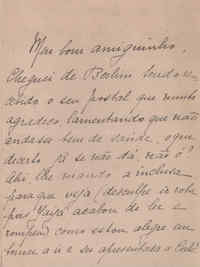 Meu bom amiguinho,
Cheguei de Berlim tendo
o seu postal que muito
agradeço, lamentando que não
andasse bem de saude, o que
já se não dá, não é?
Ahi lhe mando a inclusa
para que veja, desculpe
acabou de ler e
como estou alegre
a ir e ser apresentada a